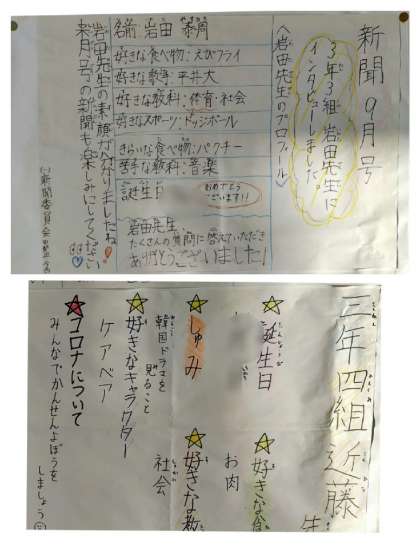 新聞 9月号
3年3組 岩田先生に
インタビューしました。
〈岩田先生のプロフィール〉
名前 岩田
好きな食べ物：えびフライ
好きな歌手：平井大
好きな教科：体育・社会
好きなスポーツ：ドッジボール
きらいな食べ物：パクチー
苦手な教科：音楽
誕生日
おめでとう
ございます!!
岩田先生
たくさんの質問に答えていただき
ありがとうございました!
岩田先生の素顔が分かりましたね!
来月号の新聞も楽しみにしてください
新聞委員会
三年四組 近藤
誕生日
好きな食
お肉
しゅみ
韓国ドラマを
見ること
好きな教
社会
しゃかい
好きなキャラクター
ケアベア
コロナについて
みんなでかんせんよぼうを
しましょう